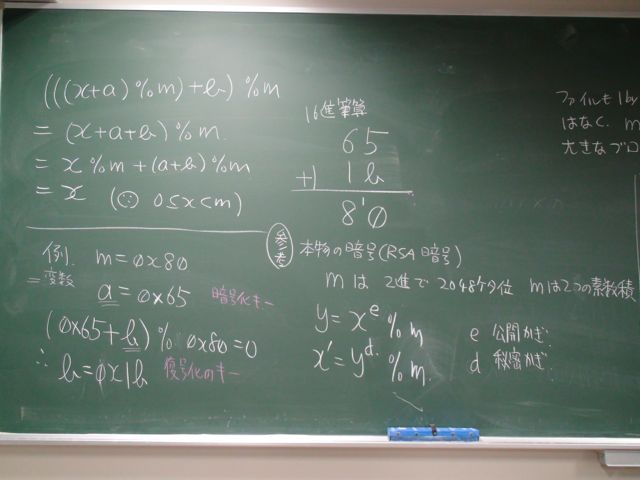 (((x+a)%m)+b)%m
= (x+a+b)%m
= x%m+(a+b)%m
= x (∵ 0≤x<m)
例. m=0x80
=変数
a=0x65 暗号化キー
(0x65+b)%0x80=0
∴ b=0x1b 復号化のキー
16進筆算
65
+) 1b
8'0
参考
本物の暗号(RSA暗号)
mは 2進で2048ケタ位 mは2つの素数積
y=x^e%m e 公開かぎ
x'=y^d%m. d 秘密かぎ
ファイルも1by
はなく、m
大きなブロ